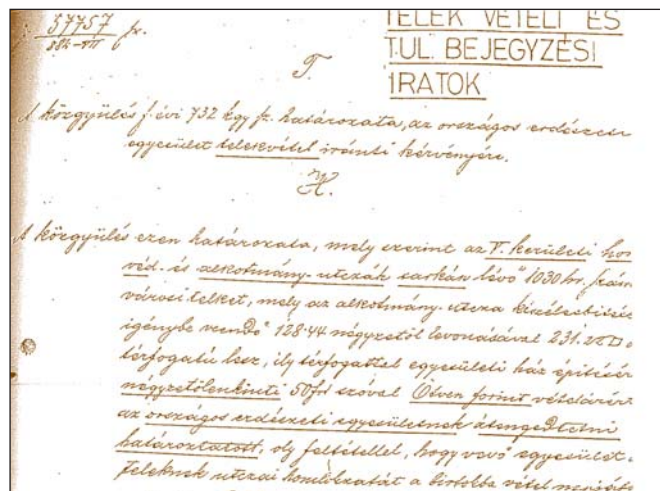 37757
884-VII fr.
TELEK VÉTELI ÉS
TUL. BEJEGYZÉSI
IRATOK
T.
A közgyülés f. évi 732 kgy sz. határozata, az országos erdészeti
egyesület telekvétel iránti kérvényére.
H.
A közgyülés ezen határozata, mely szerint az V. kerületi hon
véd- és alkotmány-utczák sarkán lévő 1030 hr. szám
városi telket, mely az alkotmány-utcza kiszélesbítésére
igénybe veendő 128·44 négyszögöl levonásával 231.
térfogatú lesz, ily térfogattal egyesületi ház építésére
négyszögölenkinti 50 frt szóval Ötven forint vételárért
az országos erdészeti egyesületnek átengedtetni
határoztatott, oly feltétellel, hogy vevő egyesület
teleknek utczai homlokzatát a birtokba vétel